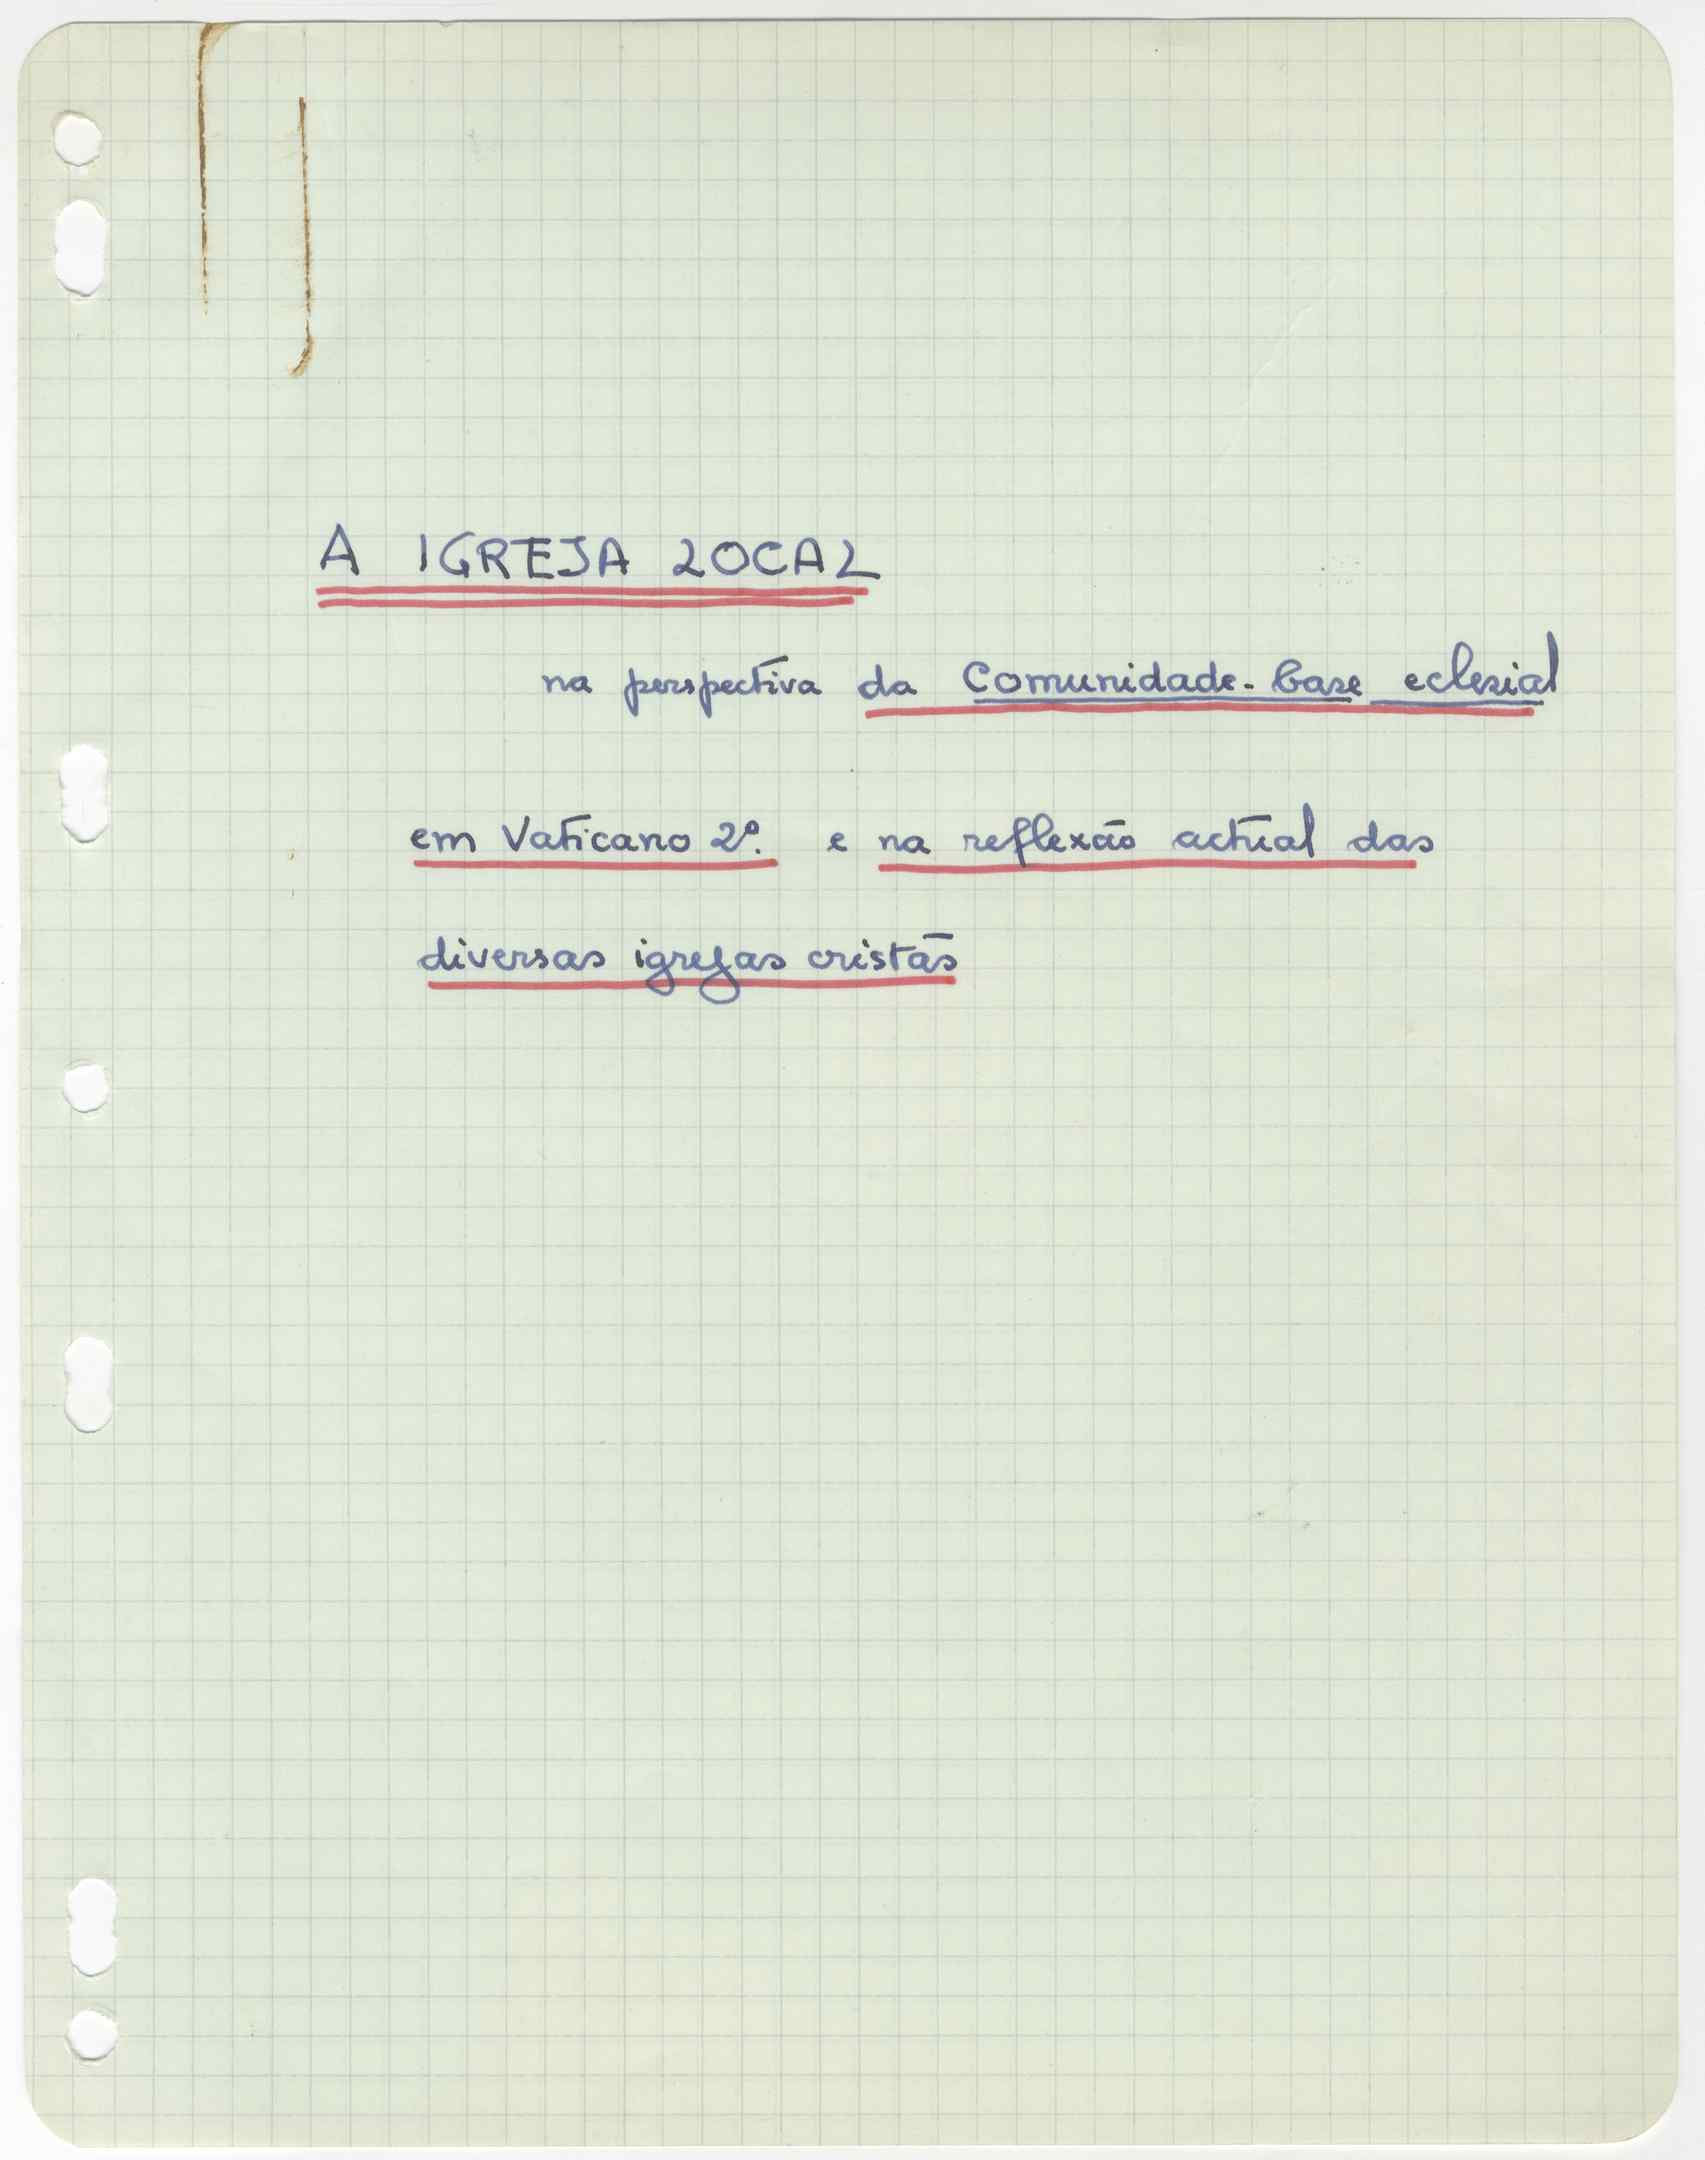 A IGREJA LOCAL
na perspectiva da Comunidade-base eclesial
em Vaticano 2º. e na reflexão actual das
diversas igrejas cristãs